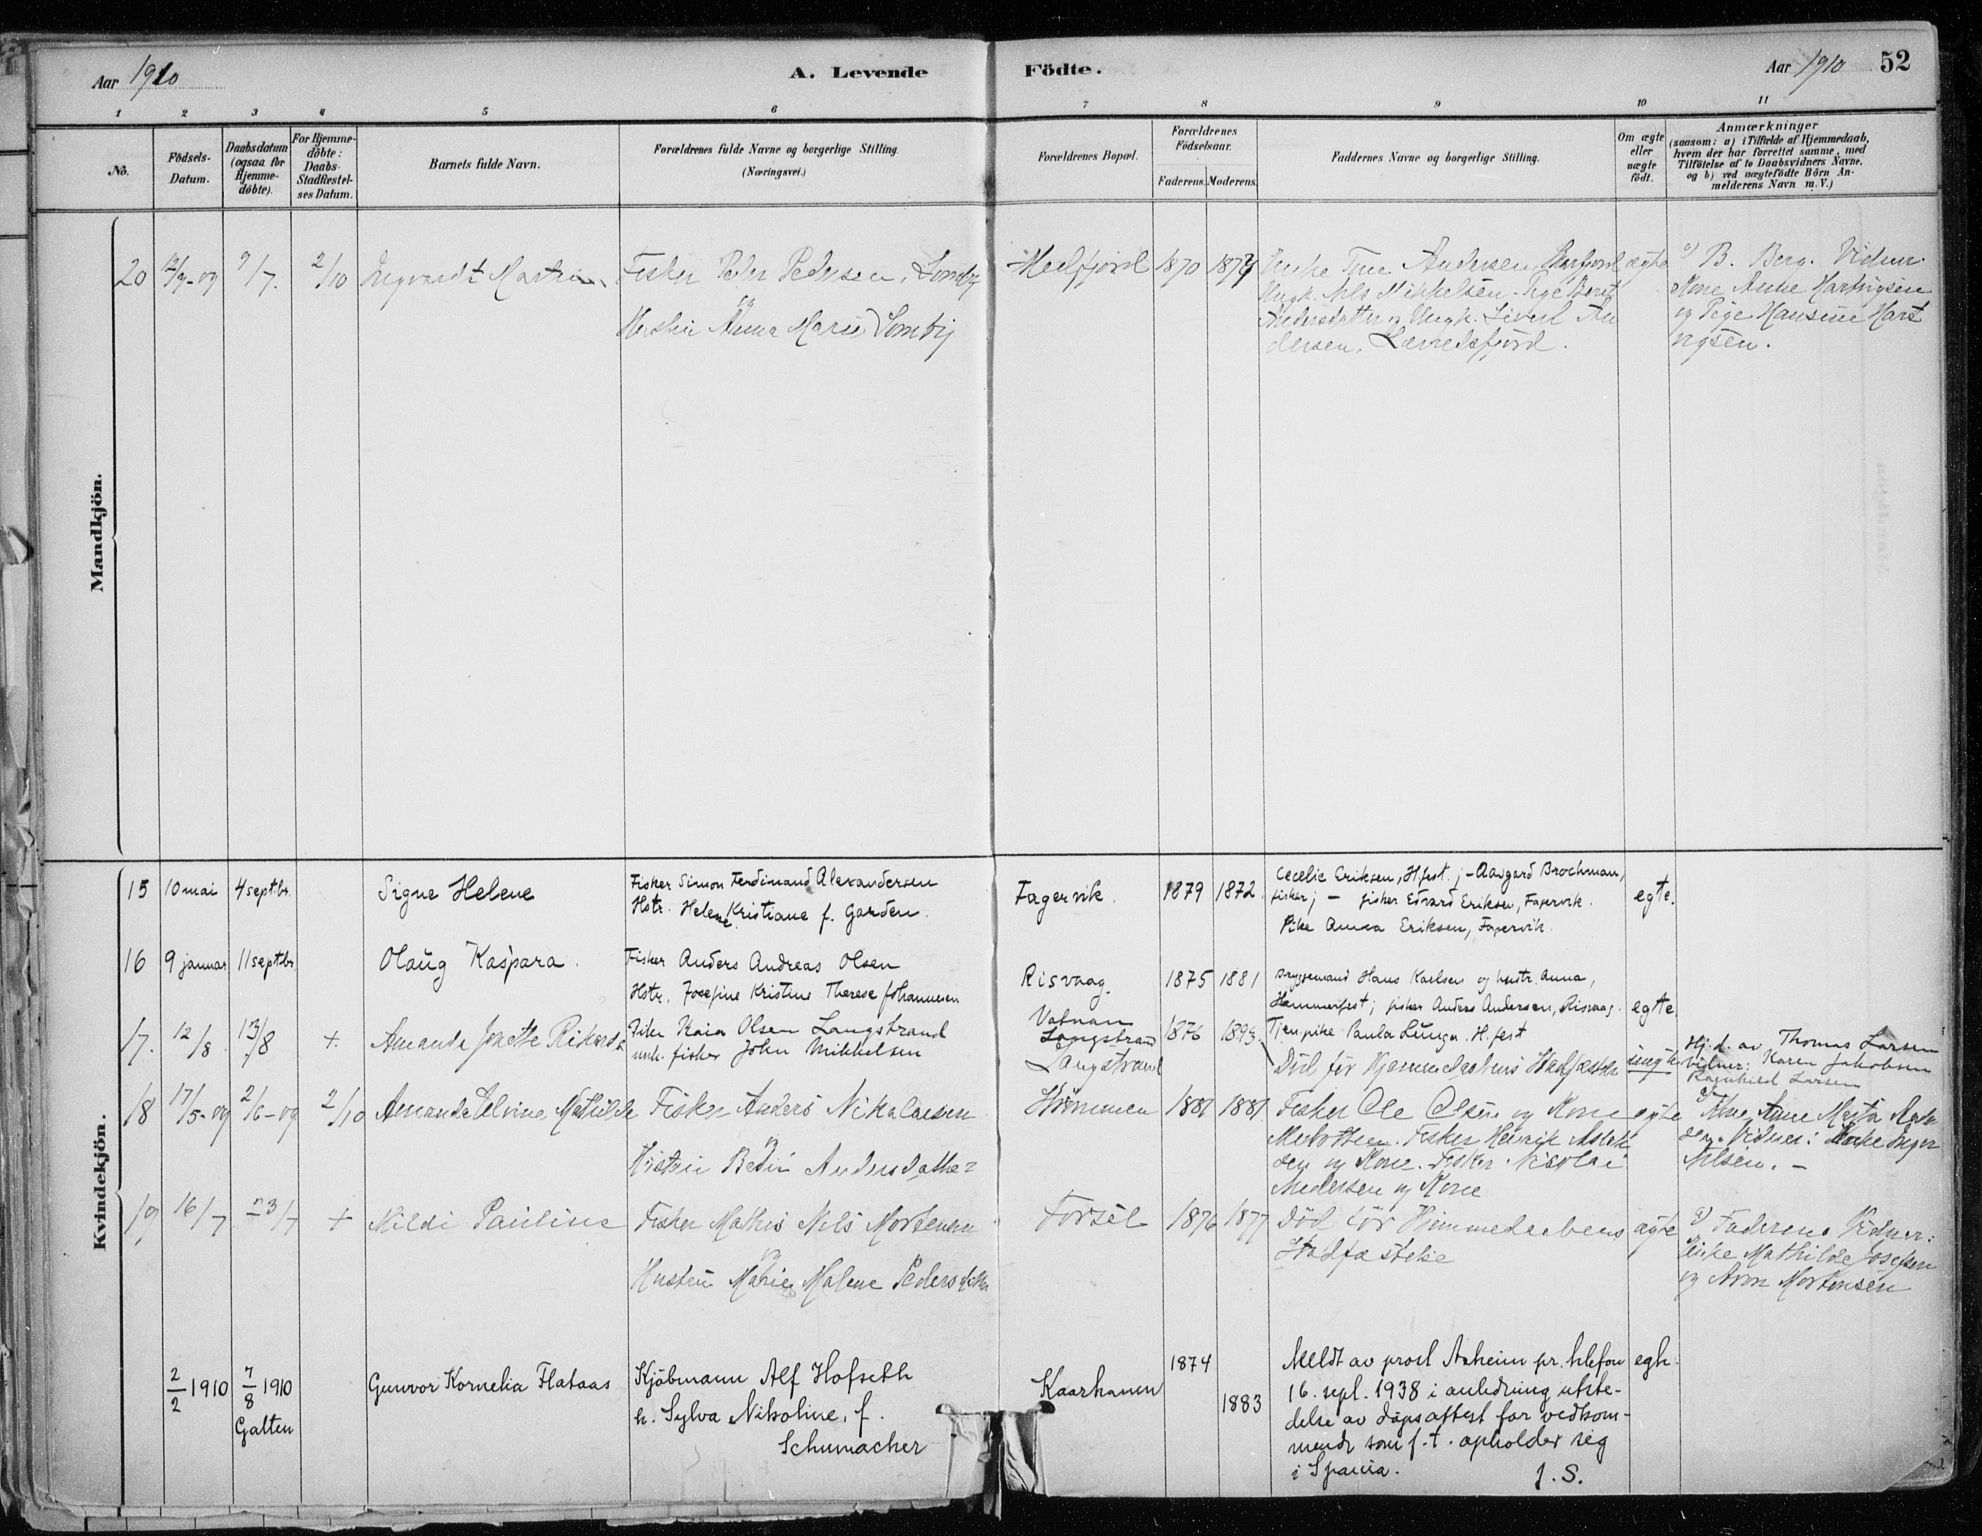 Aar 1910
A. Levende Födte.
Aar 1910 52
1 2 3 4 5 6 7 8 9 10 11
No.
Födsels-
Datum.
Daabsdatum
(ogsaa for
Hjemme-
döbte).
For Hjemme-
döbte:
Daabs-
Stadfæstel-
ses Datum.
Barnets fulde Navn.
Forældrenes fulde Navne og borgerlige Stilling.
(Næringsvei.)
Forældrenes Bopæl.
Forældrenes
Födselsaar.
Faderens. Moderens.
Faddernes Navne og borgerlige Stilling.
Om ægte
eller
uægte
födt.
Anmærkninger
(saasom: a) i Tilfælde af Hjemmedaab,
hvem der har forrettet samme, med
Tilföielse af to Daabsvidners Navne,
og b) ved uægtefödte Börn An-
melderens Navn m. V.)
Mandkjön.
20 9/7. 2/10 Fisker Peder Pedersen, Somby
Anna Marie Somby
1870
Andersen
Ungk. Nils Mikkelsen. Pige Beret
Andersdatter og Ungk. Sivert An
dersen,
ægte
B. Berg. Vidner
Kone Anne Hartvigsen
og Pige Hansine Hart
vigsen.
Kvindekjön.
15 10 mai 4 septbr. Signe Helene
Fisker Simon Ferdinand Alexandersen
Hstr. Helene Kristiane f. Garden.
Fagervik. 1879 1872.
Cecelie Eriksen, Hfest. ;- Aavgard Brochman,
fisker; - fisker Edvard Eriksen, Fagervik.
Pike Anna Eriksen, Fagervik.
egte.
16 9 januar 11 septbr. Olaug Kaspara.
Fisker Anders Andreas Olsen
Hstr. Josefine Kristine Therese Johannesen
Risvaag. 1875 1881
Bryggemand Hans Karlsen og hustr. Anna,
Hammerfest; fisker Anders Andersen, Risvaag.
Tjen.pike Paula Lunga. H.fest
egte.
17. 12/8 13/8 + Amanda
Pike Kaia Olsen Langstrand
unk. fisker John Mikkelsen
Langstrand
Langstrand
1876 1893.
Död för Hjemmedaabens Stadfæstelse
uegte
Hj.d. av Thomas Larsen
Vidner: Karen Jakobsen
Ragnhild Larsen
18 17/5-09 2/6-09 2/10 Amanda Elvine Mathilde
Fisker Anders Nikolaisen
og
Hustru Andersdatter
1881 1881.
Fisker Ole Olsen og Kone
Fisker Henrik
sen og Kone. Fisker Nikolai
Andersen og Kone
egte
Anne
Vidner: Enke Inger
Nilsen. -
19 16/7 23/7 + Mildi Pauline
Fisker Mathis Nils Mortensen
og
Hustru Marie Malene Pedersdatter
Forsöl 1876 1877
Död för Hjemmedaabens
Stadfæstelse
ægte
Faderen. Vidner:
Pike Mathilde Josefsen
og Aron Mortensen
2/2 1910 7/8 1910
Galten
Gunvor Kornelia Flataas
Kjöbmann Alf Hofseth
h. Sylva Nikoline, f.
Schumacher
Kaarhamn
1874
1883
Meldt av prost Anheim pr. telefon
16. sept. 1938 i anledning utste-
delse av dåpsattest for vedkom-
mende som f.t. opholder sig
i Spania. J. S.
egte.